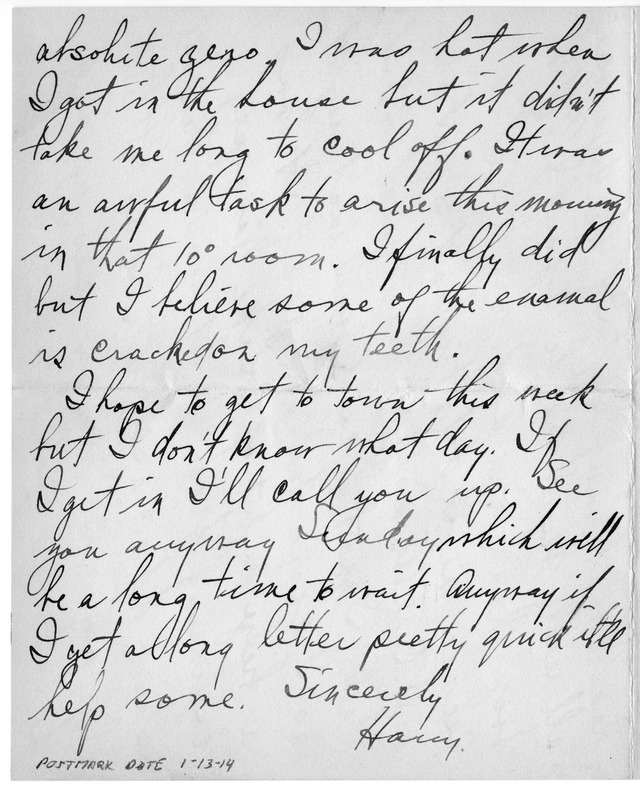 absolute zero. I was hot when
I got in the house but it didn't
take me long to cool off. It was
an awful task to arise this morning
in that 10° room. I finally did
but I believe some of the enamal
is cracked on my teeth.
I hope to get to town this week
but I don't know what day. If
I get in I'll call you up. See
you anyway Sunday which will
be a long time to wait. Anyway if
I get a long letter pretty quick it'll
help some. Sincerely
Harry.
POSTMARK DATE 1-13-14